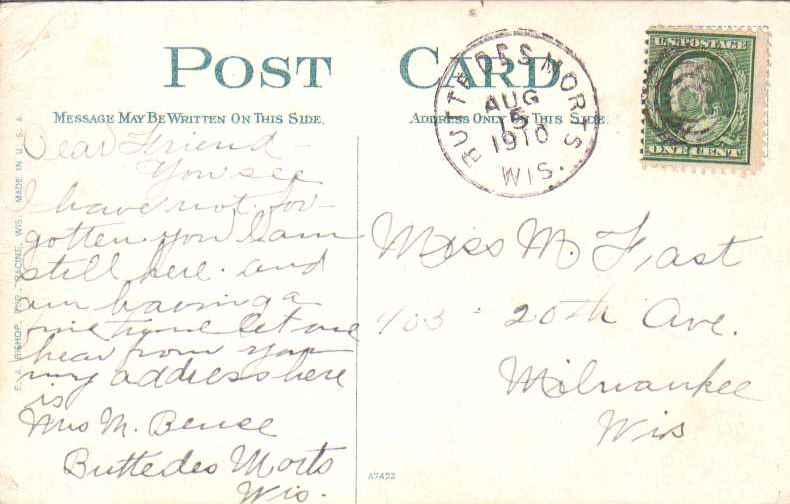 POST CARD
MESSAGE MAY BE WRITTEN ON THIS SIDE.
ADDRESS ONLY ON THIS SIDE
BUTTE DES MORTS
AUG
15
1910
WIS.
U.S. POSTAGE
ONE CENT
Dear Friend -
You see
I have not for-
gotten you I am
still here. and
am having a
fine time let me
hear from you
my address here
is
Mrs M. Beuse
Butte des Morts
Wis.
Miss M. Fast
403 - 20th Ave.
Milwaukee
Wis
A7422
E. A. BISHOP, RACINE, WIS. MADE IN U. S. A.